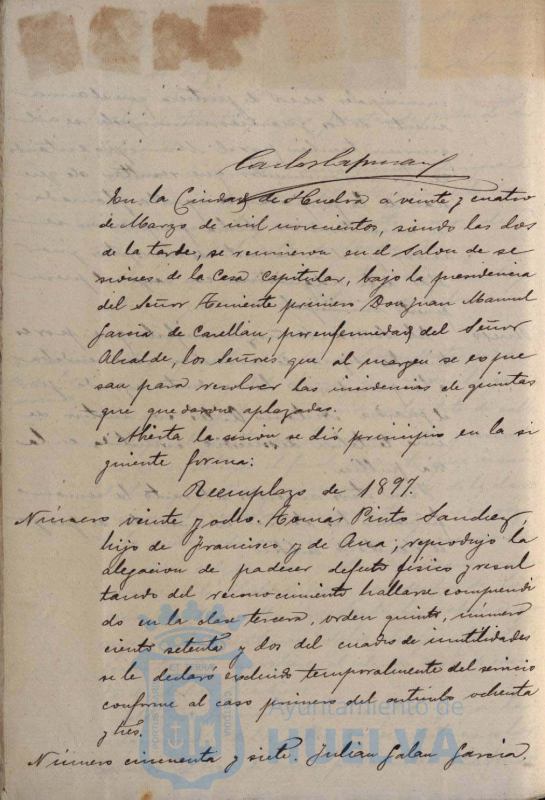 En la Ciudad de Huelva á veinte y cuatro
de Marzo de mil novecientos, siendo las dos
de la tarde, se reunieron en el Salon de se
siones de la Casa Capitular, bajo la presidencia
del Señor Teniente primero Don Juan Manuel
Garcia de Casellan, por enfermedad del Señor
Alcalde, los Señores que al margen se expre
san para resolver las incidencias de quintas
que quedaron aplazadas.
Abierta la sesion se dió principio en la si
guiente forma:
Reemplazo de 1897.
Número veinte y ocho. Tomás Pinto Sanchez,
hijo de Francisco y de Ana; reprodujo la
alegacion de padecer defecto fisico y resul
tando del reconocimiento hallarse comprendi
do en la clase tercera, orden quinto, número
ciento setenta y dos del cuadro de inutilidades
se le declaró excluido temporalmente del servicio
conforme al caso primero del articulo ochenta
y tres.
Número cincuenta y siete. Julian Galan Garcia.
Ayuntamiento de
HUELVA